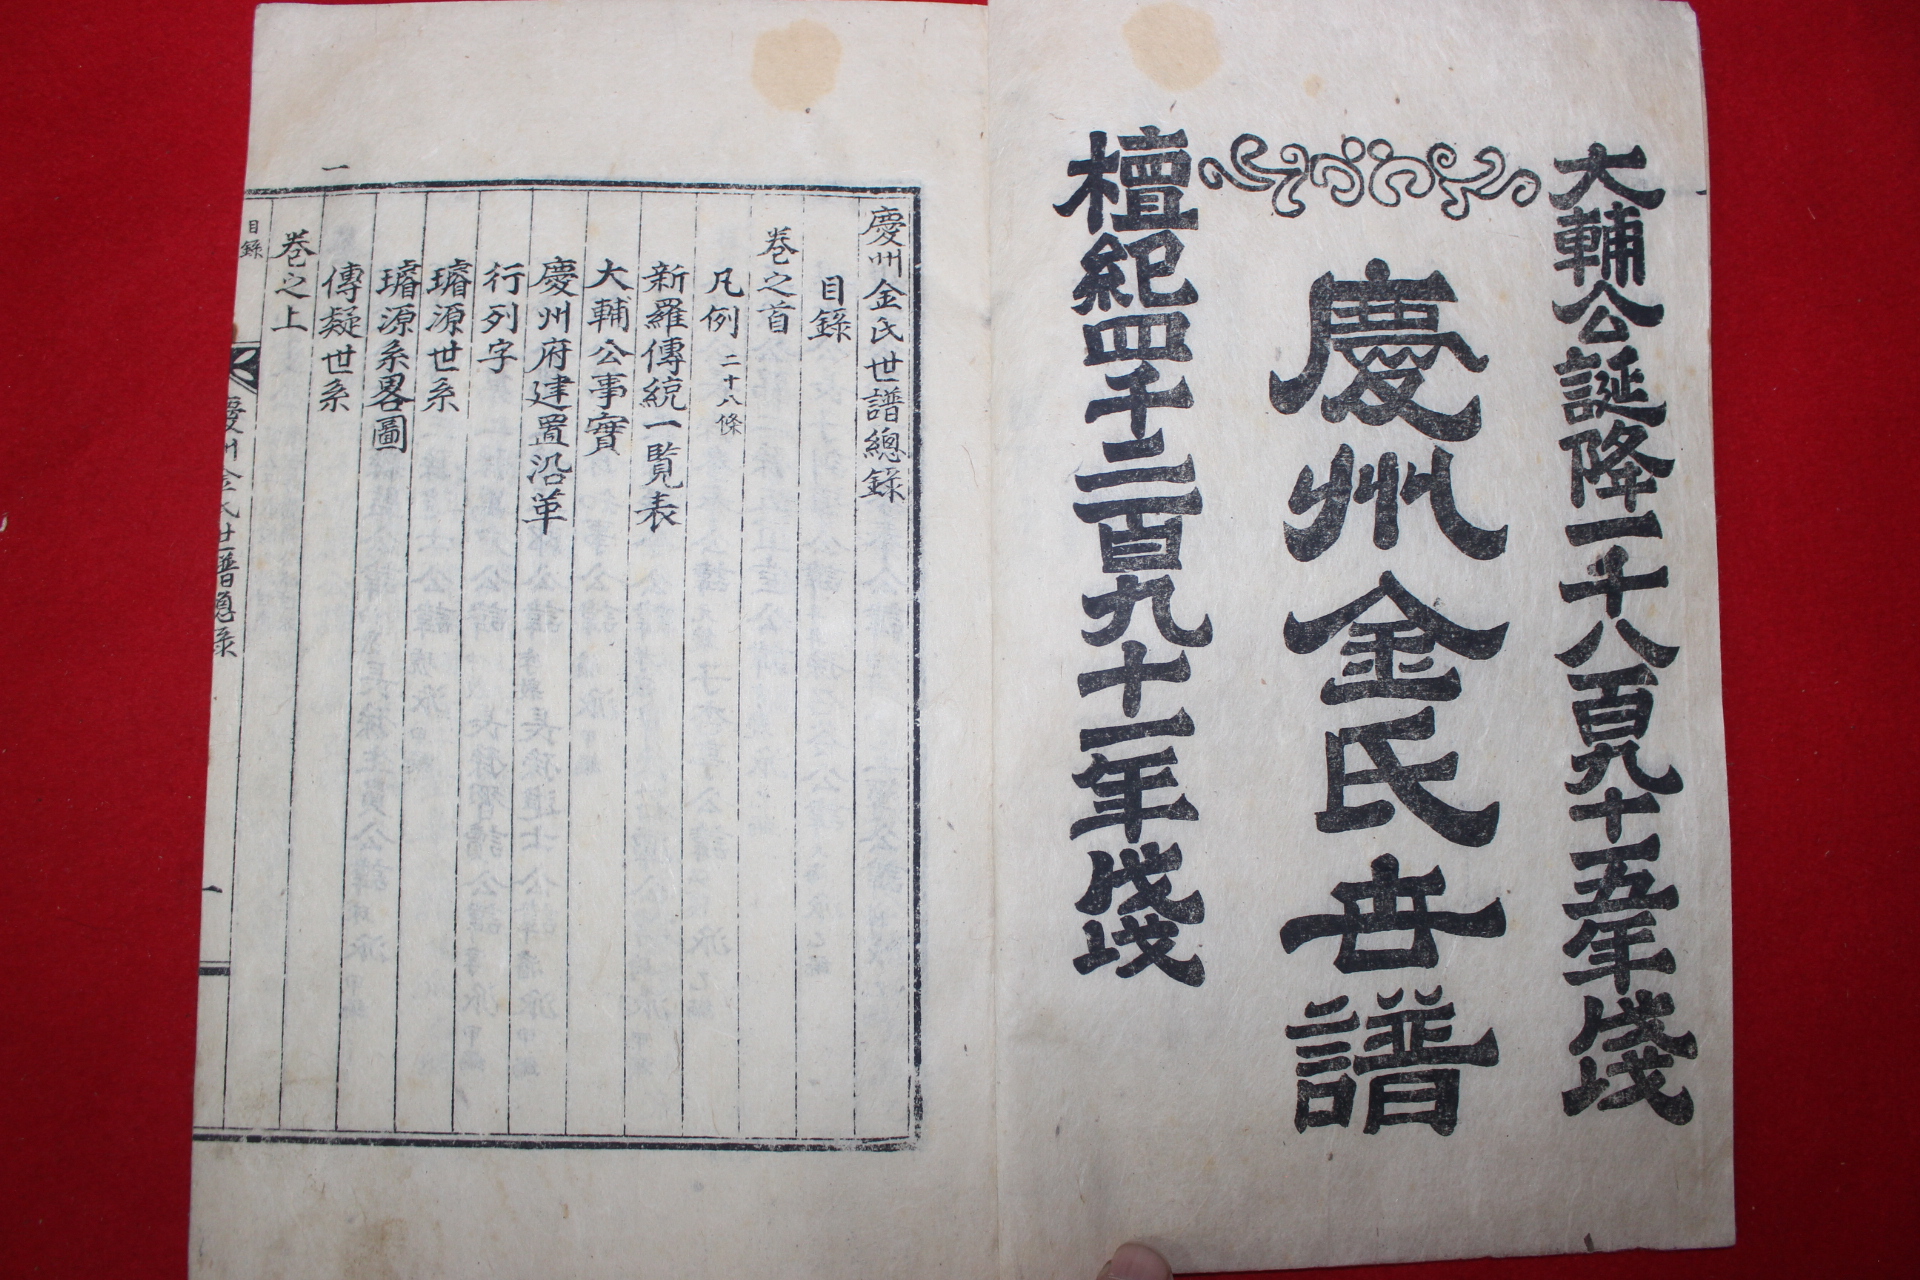 大輔公誕降一千八百九十五年戊戌
慶州金氏世譜
檀紀四千二百九十一年戊戌
慶州金氏世譜總錄
目錄
卷之首
凡例 二十八條
新羅傳統一覧表
大輔公事實
慶州府建置沿革
行列字
璿源世系
璿源系畧圖
傳疑世系
卷之上
一
目錄
慶州金氏世譜總錄
一